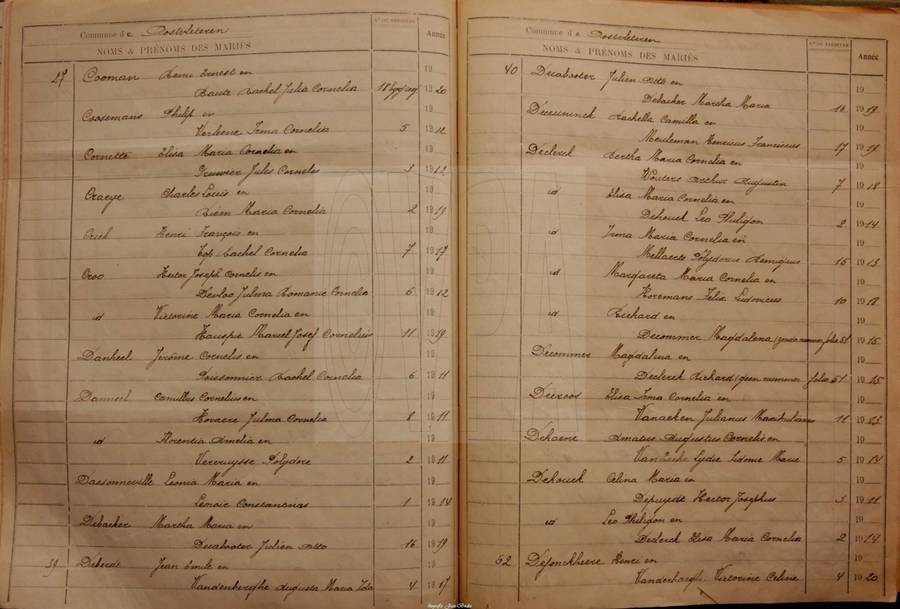 Commune de Oostvleteren
NOMS & PRÉNOMS DES MARIÉS
N° DU REGISTRE
Année
27 Cooman Henri Ernest en 19
Baute Rachel Julia Cornelia 1920
Coosemans Philip en 19
Verbeene Irma Cornelia 5 1912
Cornette Elisa Maria Cornelia en 19
Gruwier Jules Cornelis 3 1912
Craeye Charles Louis en 19
Riem Maria Cornelia 2 1919
Henri François en 19
Top Rachel Cornelia 7 1917
Croo Hector Joseph Cornelis en 19
Devloo Julma Romanie Cornelia 6 1912
id Victorine Maria Cornelia en 19
Hauspie Marcel Josef Cornelius 11 1919
Danheel Jérôme Cornelis en 19
Poissonnier Rachel Cornelia 6 1911
Camillus Cornelius en 19
Hovaere Julma Cornelia 8 1911
id Florentia Amelia en 19
Vercruysse Polydore 2 1911
Dassonneville Leonia Maria en 19
Lenoir Constantinas 1 1914
Debacker Martha Maria en 19
Decabooter Julien Otto 16 1919
39 Deberdt Jean Emile en 19
Vandenberghe Augusta Maria 4 1917
Commune de Oostvleteren
NOMS & PRÉNOMS DES MARIÉS
N° DU REGISTRE
Année
40 Decabooter Julien Otto en 19
Debacker Martha Maria 16 1919
Deceuninck Rachella Camilla en 19
Meuleman Henricus Franciscus 17 1919
Declerck Bertha Maria Cornelia en 19
Wouters Arthur Augustin 7 1918
id Elisa Maria Cornelia en 19
Dehouck Leo Philigon 2 1914
id Irma Maria Cornelia en 19
Mellaerts Polydorus Remigius 15 1913
id Margareta Maria Cornelia en 19
Horemans Felix Ludovicus 10 1912
id Richard en 19
Decommer Magdalena (geen nummer) folio 51 1915
Decommer Magdalena en 19
Declerck Richard (geen nummer folio 51 1915
Decroos Elisa Irma Cornelia en 19
Vanacken Julianus 11
Dehaene Amatus Augustus Cornelis en 19
Lydie Sidonie Marie 5 1914
Dehouck Celina Maria en 19
Depuydt Hector Josephus 3 1911
id Leo Philigon en 19
Declerck Elisa Maria Cornelia 2 1914
52 Dejonckheere Henri en 19
Vandenberghe Victorine Celine 4 1920